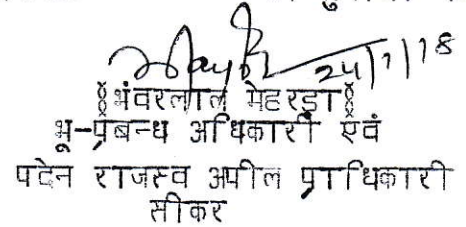 24/7/18
भंवरलाल मेहरड़ा
भू-प्रबन्ध अधिकारी एवं
पदेन राजस्व अपील प्राधिकारी
सीकर